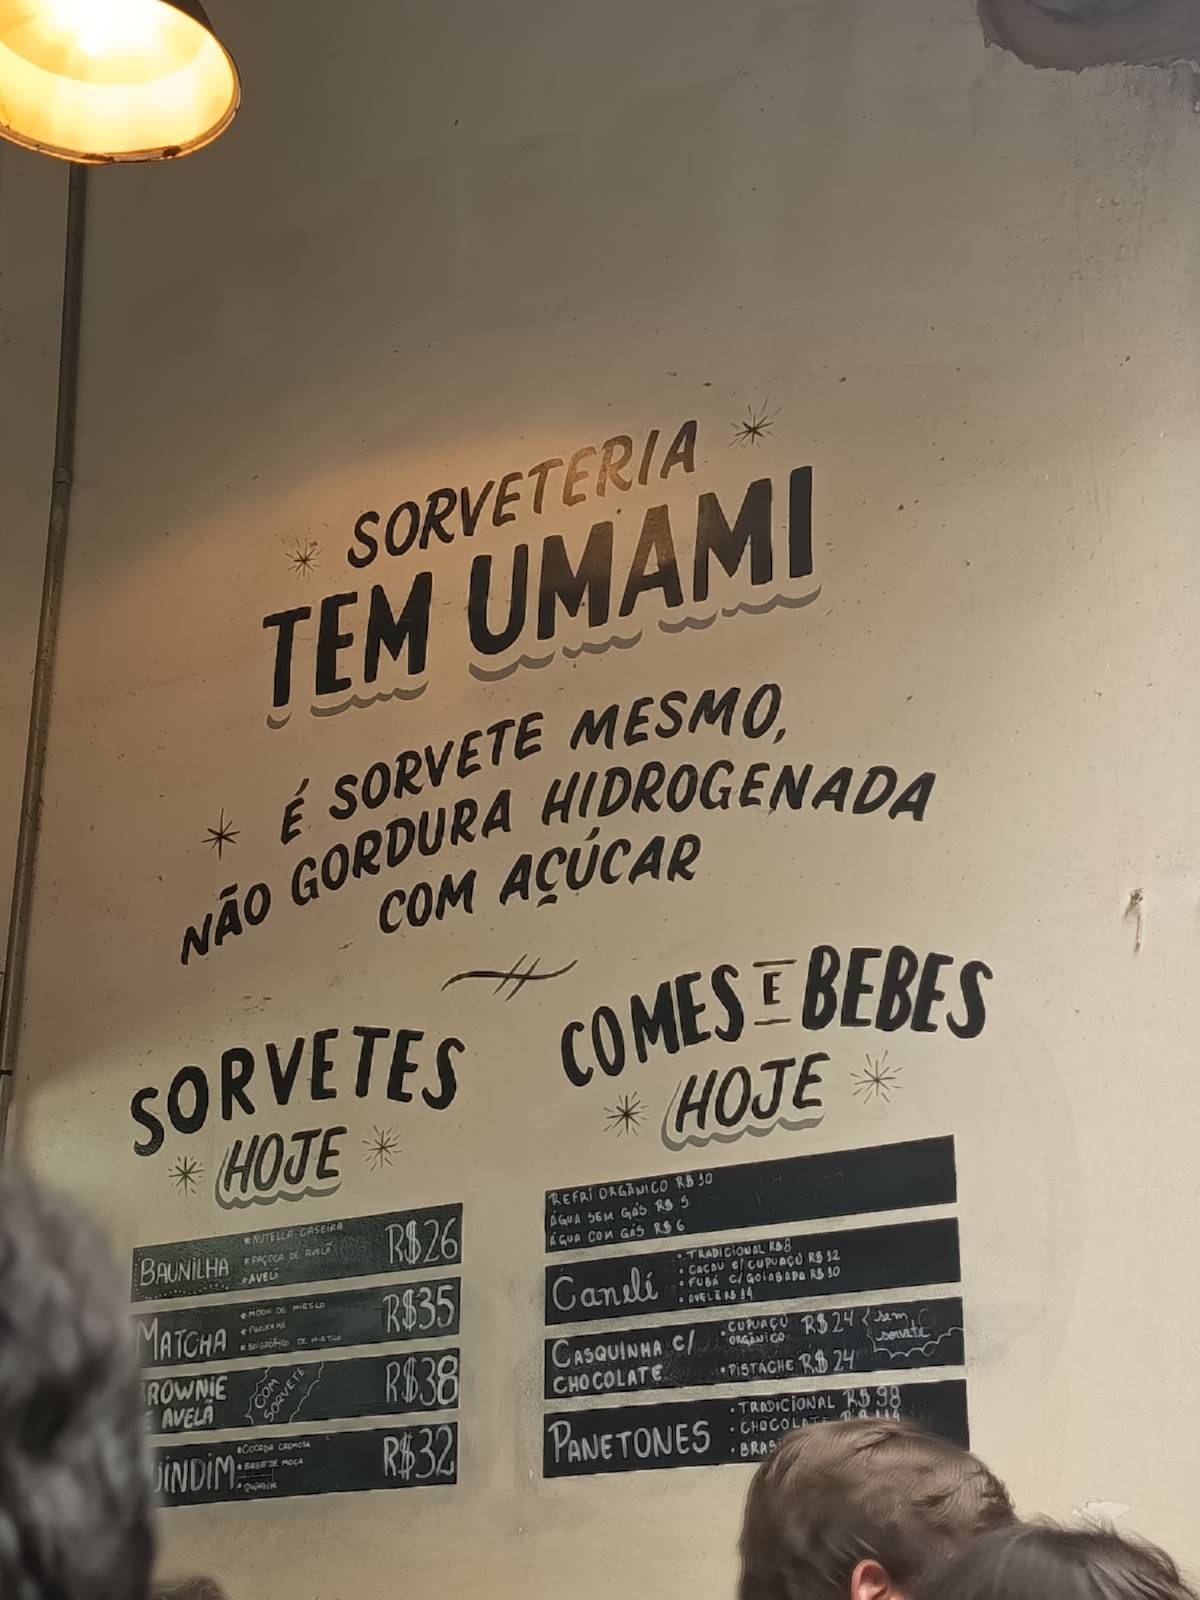 SORVETERIA
TEM UMAMI
É SORVETE MESMO,
NÃO GORDURA HIDROGENADA
COM AÇÚCAR
SORVETES
HOJE
BAUNILHA
NUTELLA CASEIRA
PAÇOCA DE AVELÃ
AVELÃ
R$26
MATCHA
DE MIRTILO
R$35
ROWNIE
E AVELÃ
COM SORVETE
R$38
UINDIM
COCADA CREMOSA
BABA DE MOÇA
QUINDIM
R$32
COMES E BEBES
HOJE
REFRI ORGÂNICO R$10
ÁGUA SEM GÁS R$ 5
ÁGUA COM GÁS R$ 6
Canelé
TRADICIONAL R$8
CACAU C/ CUPUAÇU R$12
FUBÁ C/ GOIABADA R$10
AVELÃ R$14
CASQUINHA C/
CHOCOLATE
CUPUAÇU ORGÂNICO R$24
sem sorvete
PISTACHE R$24
PANETONES
TRADICIONAL R$98
CHOCOLATE
BRAS